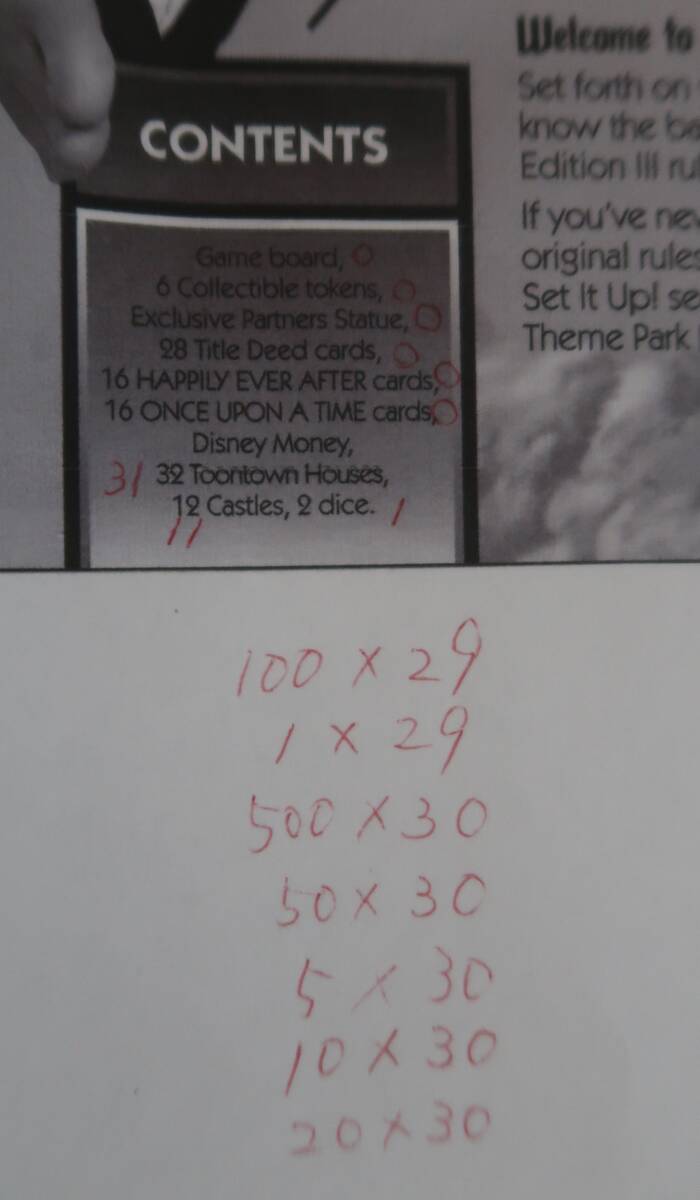 CONTENTS
Game board, O
6 Collectible tokens, O
Exclusive Partners Statue, O
28 Title Deed cards, O
16 HAPPILY EVER AFTER cards, O
16 ONCE UPON A TIME cards, O
Disney Money,
31 32 Toontown Houses,
12 Castles, 2 dice. 1
11
Welcome to
Set forth on
know the
Edition III
If you've
original rules
Set It Up!
Theme Park
100 × 29
1 × 29
500 × 30
50 × 30
5 × 30
10 × 30
20 × 30